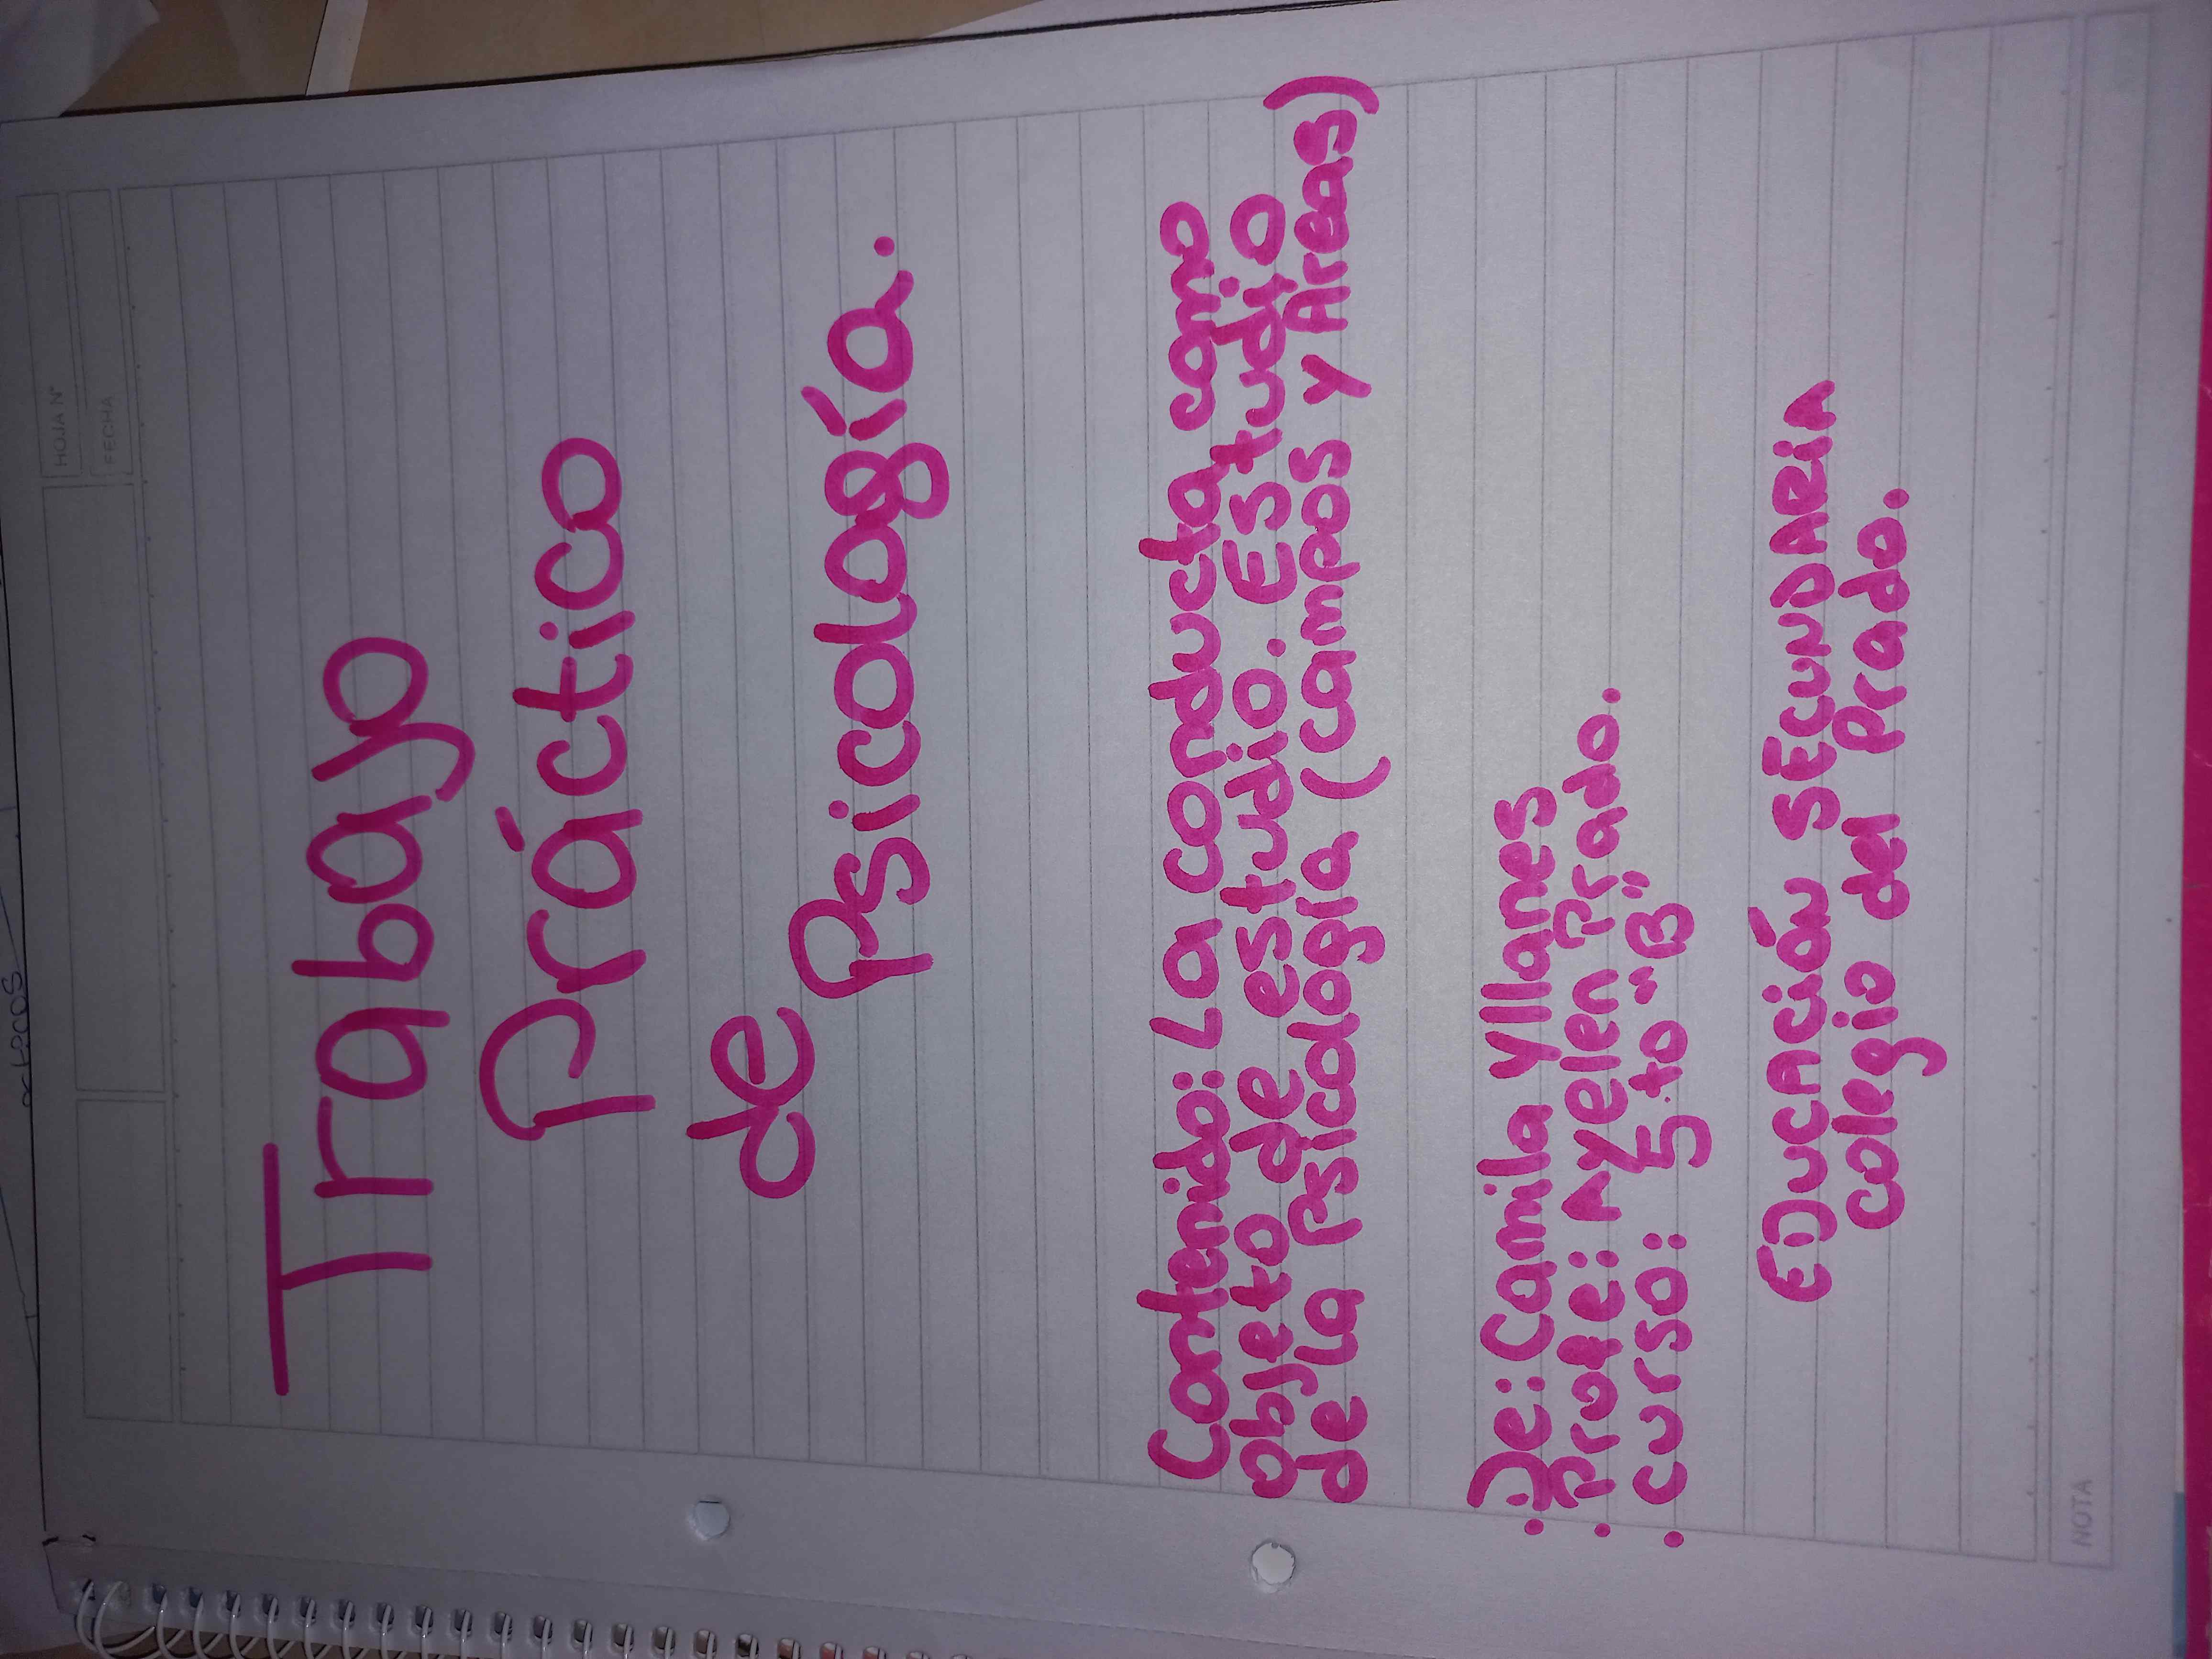 HOJA N°
FECHA
Trabajo
Práctico
de Psicología.
Contenido: La conducta como
objeto de estudio. Estudio
de la Psicología (campos y Áreas)
. De: Camila Yllanes
. Profe: Ayelen Prado.
. curso: 5to "B"
EDUCACIÓN SECUNDARIA
colegio del Prado.
NOTA